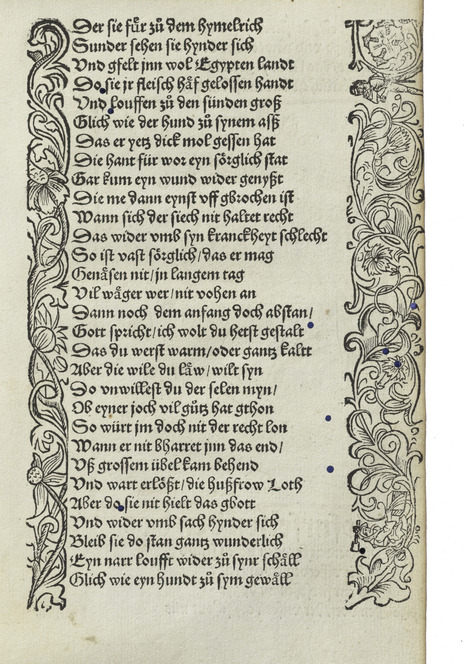 Der sie fuͤr zuͦ dem hymelrich
Sunder sehen sie hynder sich
Vnd gfelt jnn wol Egypten landt
Do sie jr fleisch haͤf gelossen handt
Vnd louffen zuͦ den sünden groß
Glich wie der hund zuͦ synem aſß
Das er yetz dick mol gessen hat
Die hant für wor eyn soͤrglich stat
Gar kum eyn wund wider genyßt
Die me dann eynst vff gbrochen ist
Wann sich der siech nit haltet recht
Das wider vmb syn kranckheyt schlecht
So ist vast soͤrglich/das er mag
Genaͤsen nit/jn langem tag
Vil waͤger wer/nit vohen an
Dann noch dem anfang doch abstan/
Gott spricht/ich wolt du hetst gestalt
Das du werst warm/oder gantz kaltt
Aber die wile du laͤw/wilt syn
So vnwillest du der selen myn/
Ob eyner joch vil guͤtz hat gthon
So würt jm doch nit der recht lon
Wann er nit bharret jnn das end/
Vß grossem übel kam behend
Vnd wart erloͤßt/die hußfrow Loth
Aber do sie nit hielt das gbott
Vnd wider vmb sach hynder sich
Bleib sie do stan gantz wunderlich
Eyn narr loufft wider zuͦ synr schaͤll
Glich wie eyn hundt zuͦ sym gewaͤll